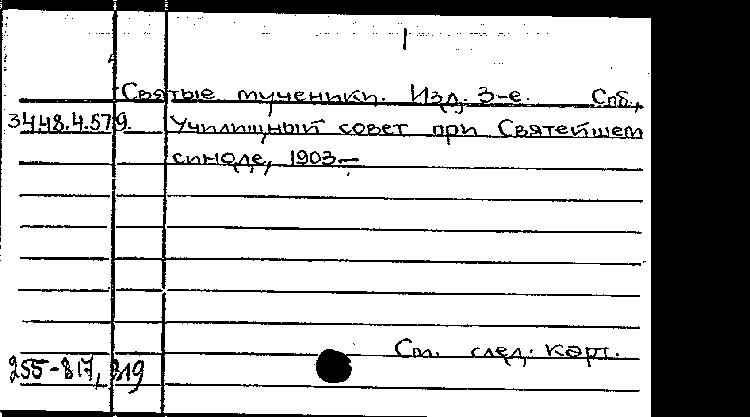 Святые мученики. Изд. 3-е. Спб.,
3448.4.579. Училищный совет при Святейшем
синоде, 1903.—
См. след. карт.
255-817, 819